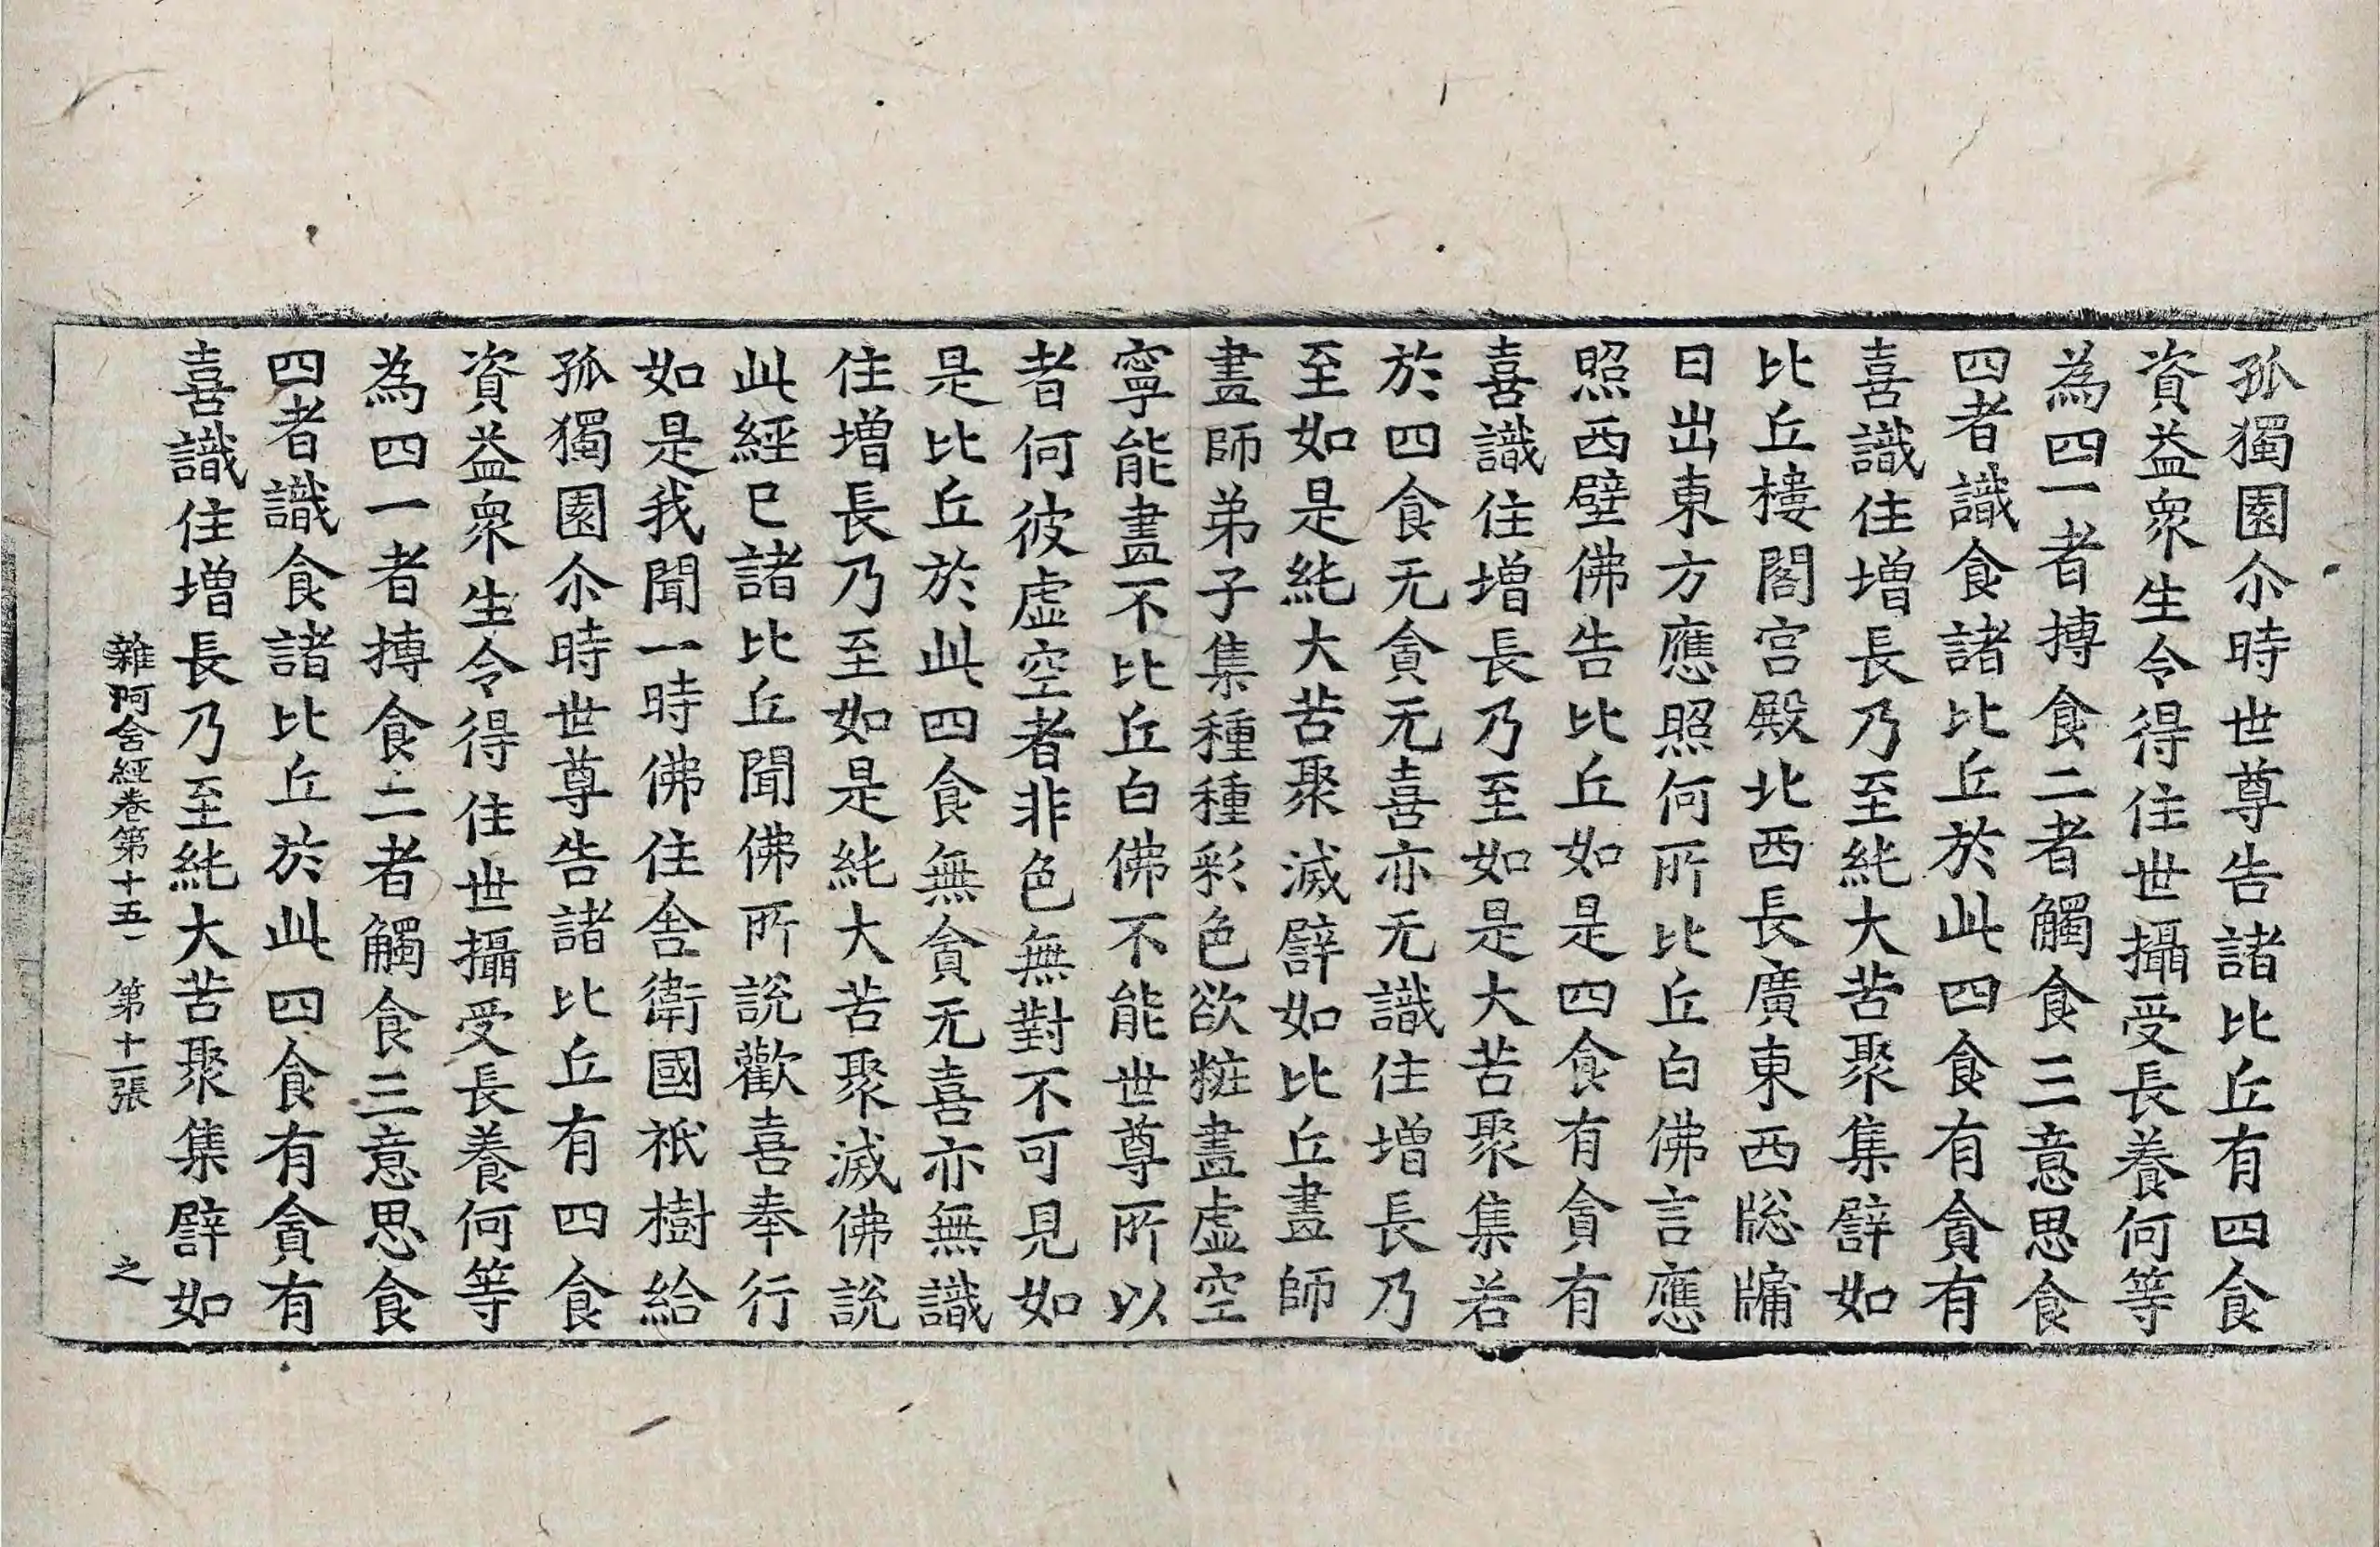 孤獨園尒時世尊告諸比丘有四食
資益衆生令得住世攝受長養何等
為四一者摶食二者觸食三意思食
四者識食諸比丘於此四食有貪有
喜識住增長乃至純大苦聚集譬如
比丘樓閣宮殿北西長廣東西牎牗
日出東方應照何所比丘白佛言應
照西壁佛告比丘如是四食有貪有
喜識住增長乃至如是大苦聚集若
於四食无貪无喜亦无識住增長乃
至如是純大苦聚滅譬如比丘畫師
畫師弟子集種種彩色欲粧畫虛空
寧能畫不比丘白佛不能世尊所以
者何彼虛空者非色無對不可見如
是比丘於此四食無貪无喜亦無識
住增長乃至如是純大苦聚滅佛說
此經已諸比丘聞佛所說歡喜奉行
如是我聞一時佛住舍衛國祇樹給
孤獨園尒時世尊告諸比丘有四食
資益衆生令得住世攝受長養何等
為四一者摶食二者觸食三意思食
四者識食諸比丘於此四食有貪有
喜識住增長乃至純大苦聚集譬如
雜阿含經卷第十五 第十一張 之